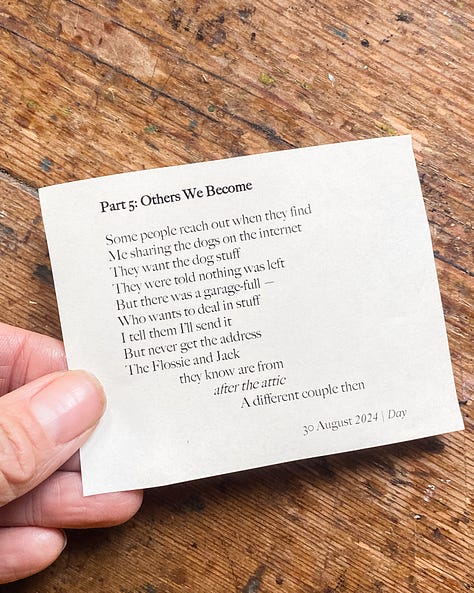 Part 5: Others We Become
Some people reach out when they find
Me sharing the dogs on the internet
They want the dog stuff
They were told nothing was left
But there was a garage-full —
Who wants to deal in stuff
I tell them I'll send it
But never get the address
The Flossie and Jack
they know are from
after the attic
A different couple then
30 August 2024 | Day